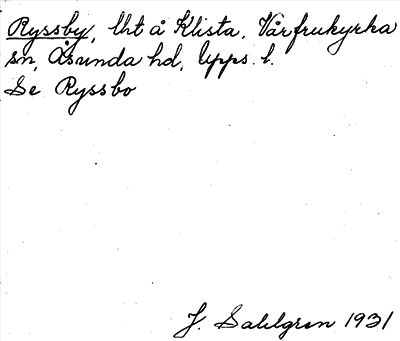 Ryssby, lht å Klista, Vårfrukyrka
sn, Åsunda hd, Upps. l.
Se Ryssbo
J. Sahlgren 1931